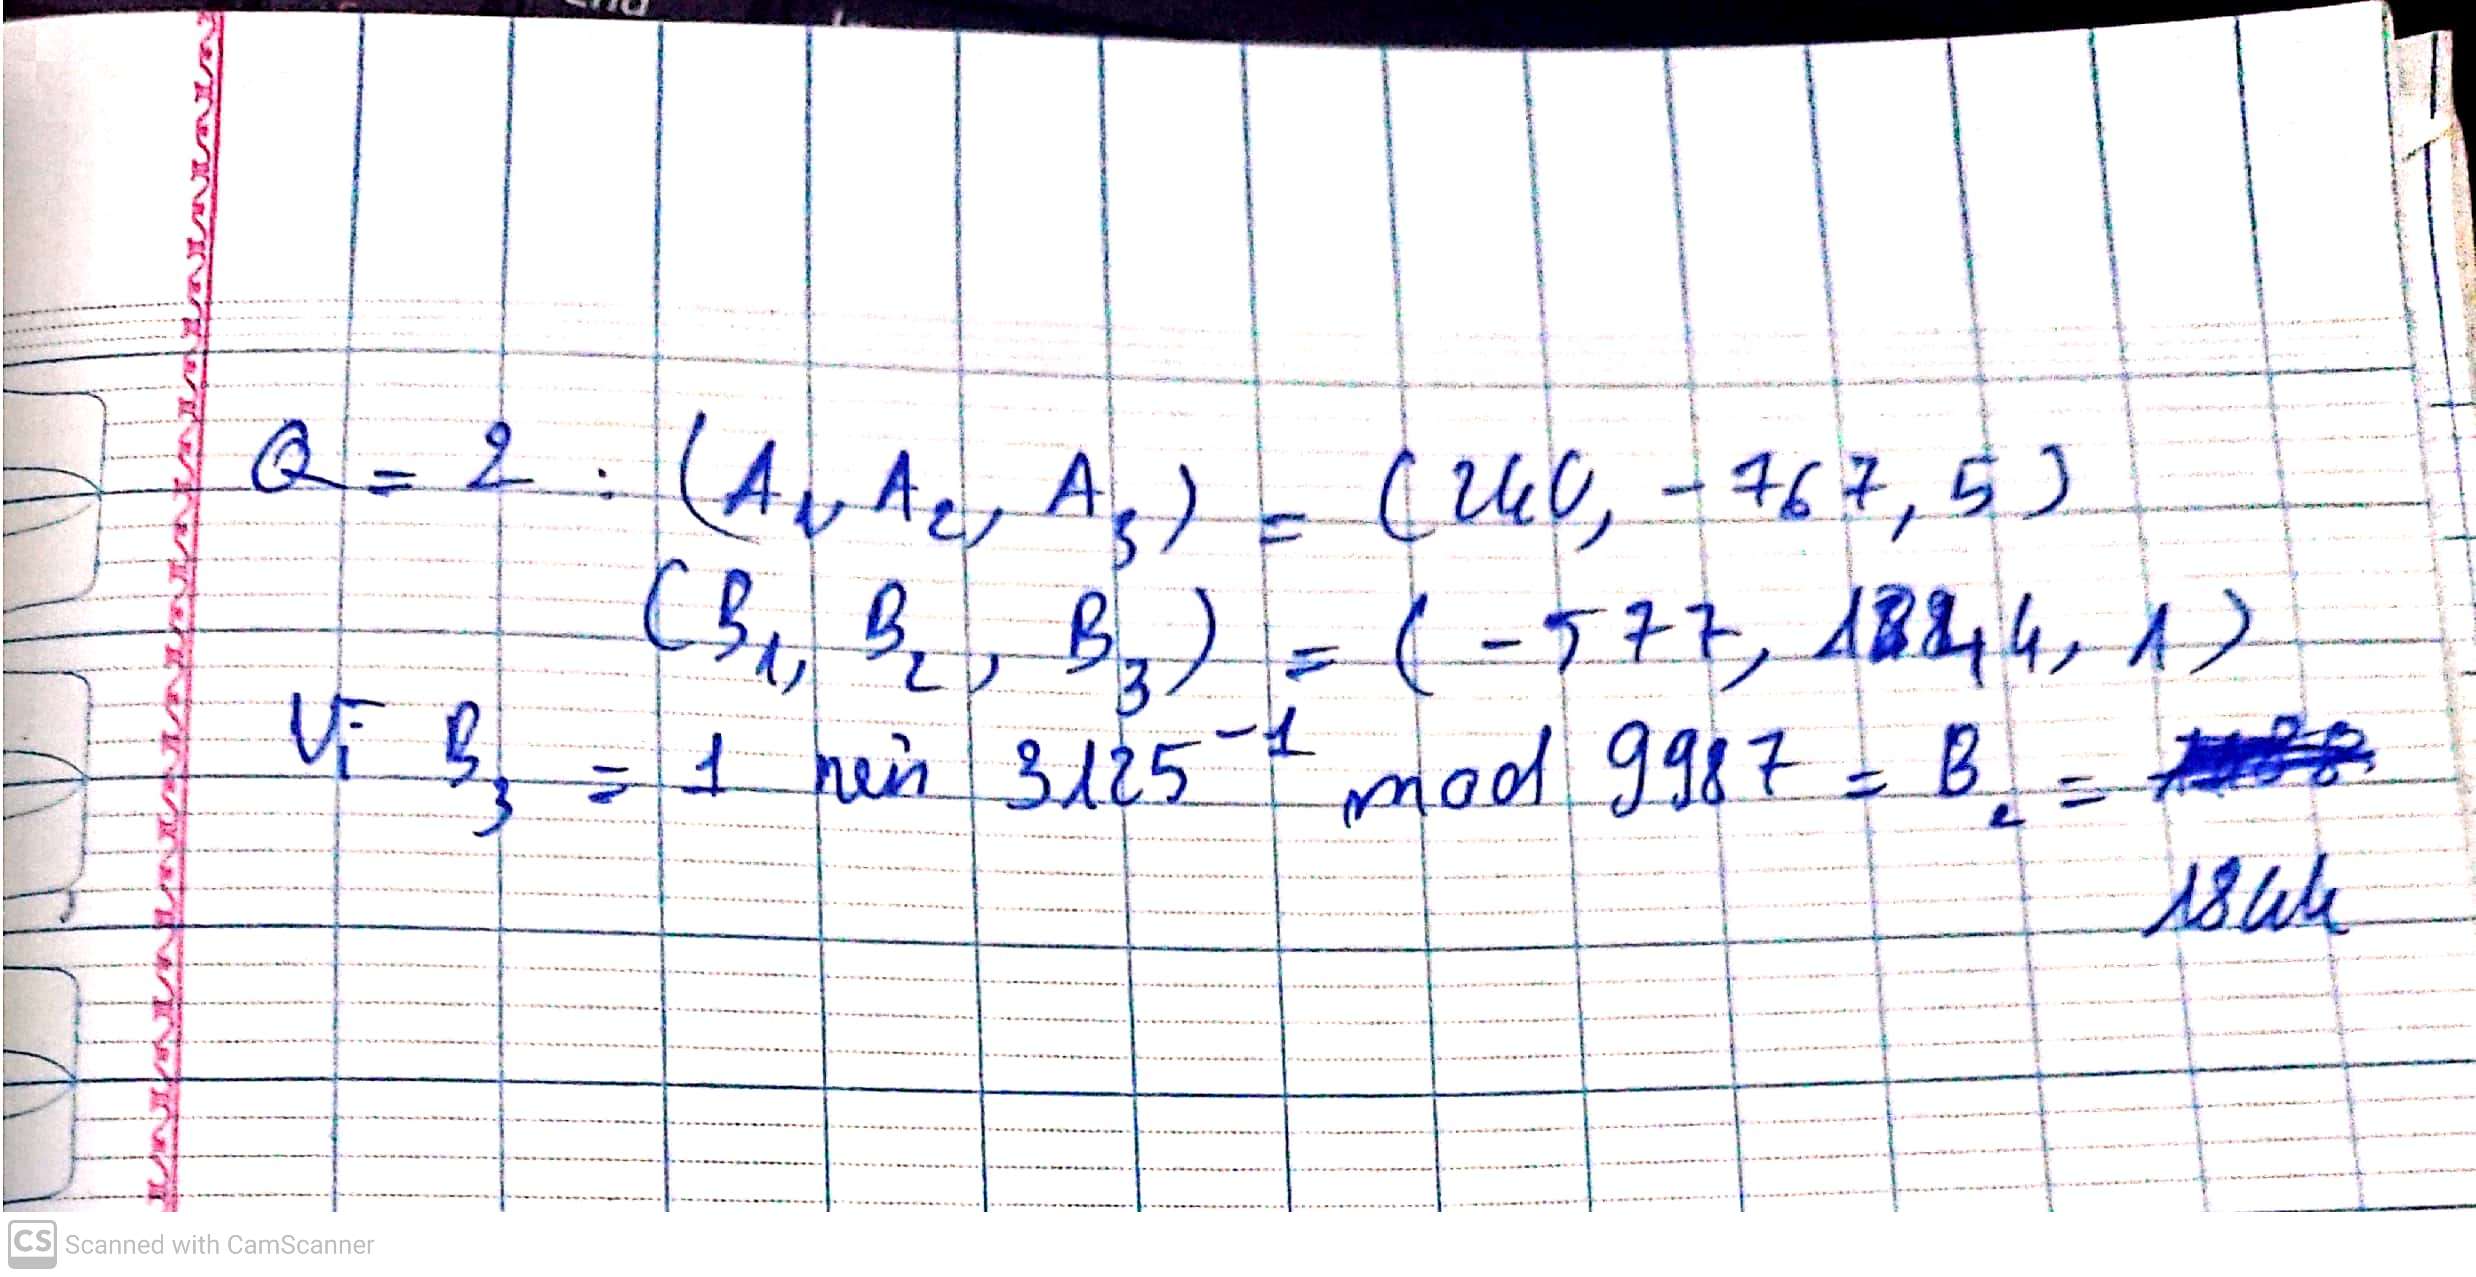 Q = 2 : (A₁, A₂, A₃) = (240, -767, 5)
(B₁, B₂, B₃) = (-577, 1844, 1)
Vì B₃ = 1 nên 3125⁻¹ mod 9987 = B₂ =
1844
CS Scanned with CamScanner